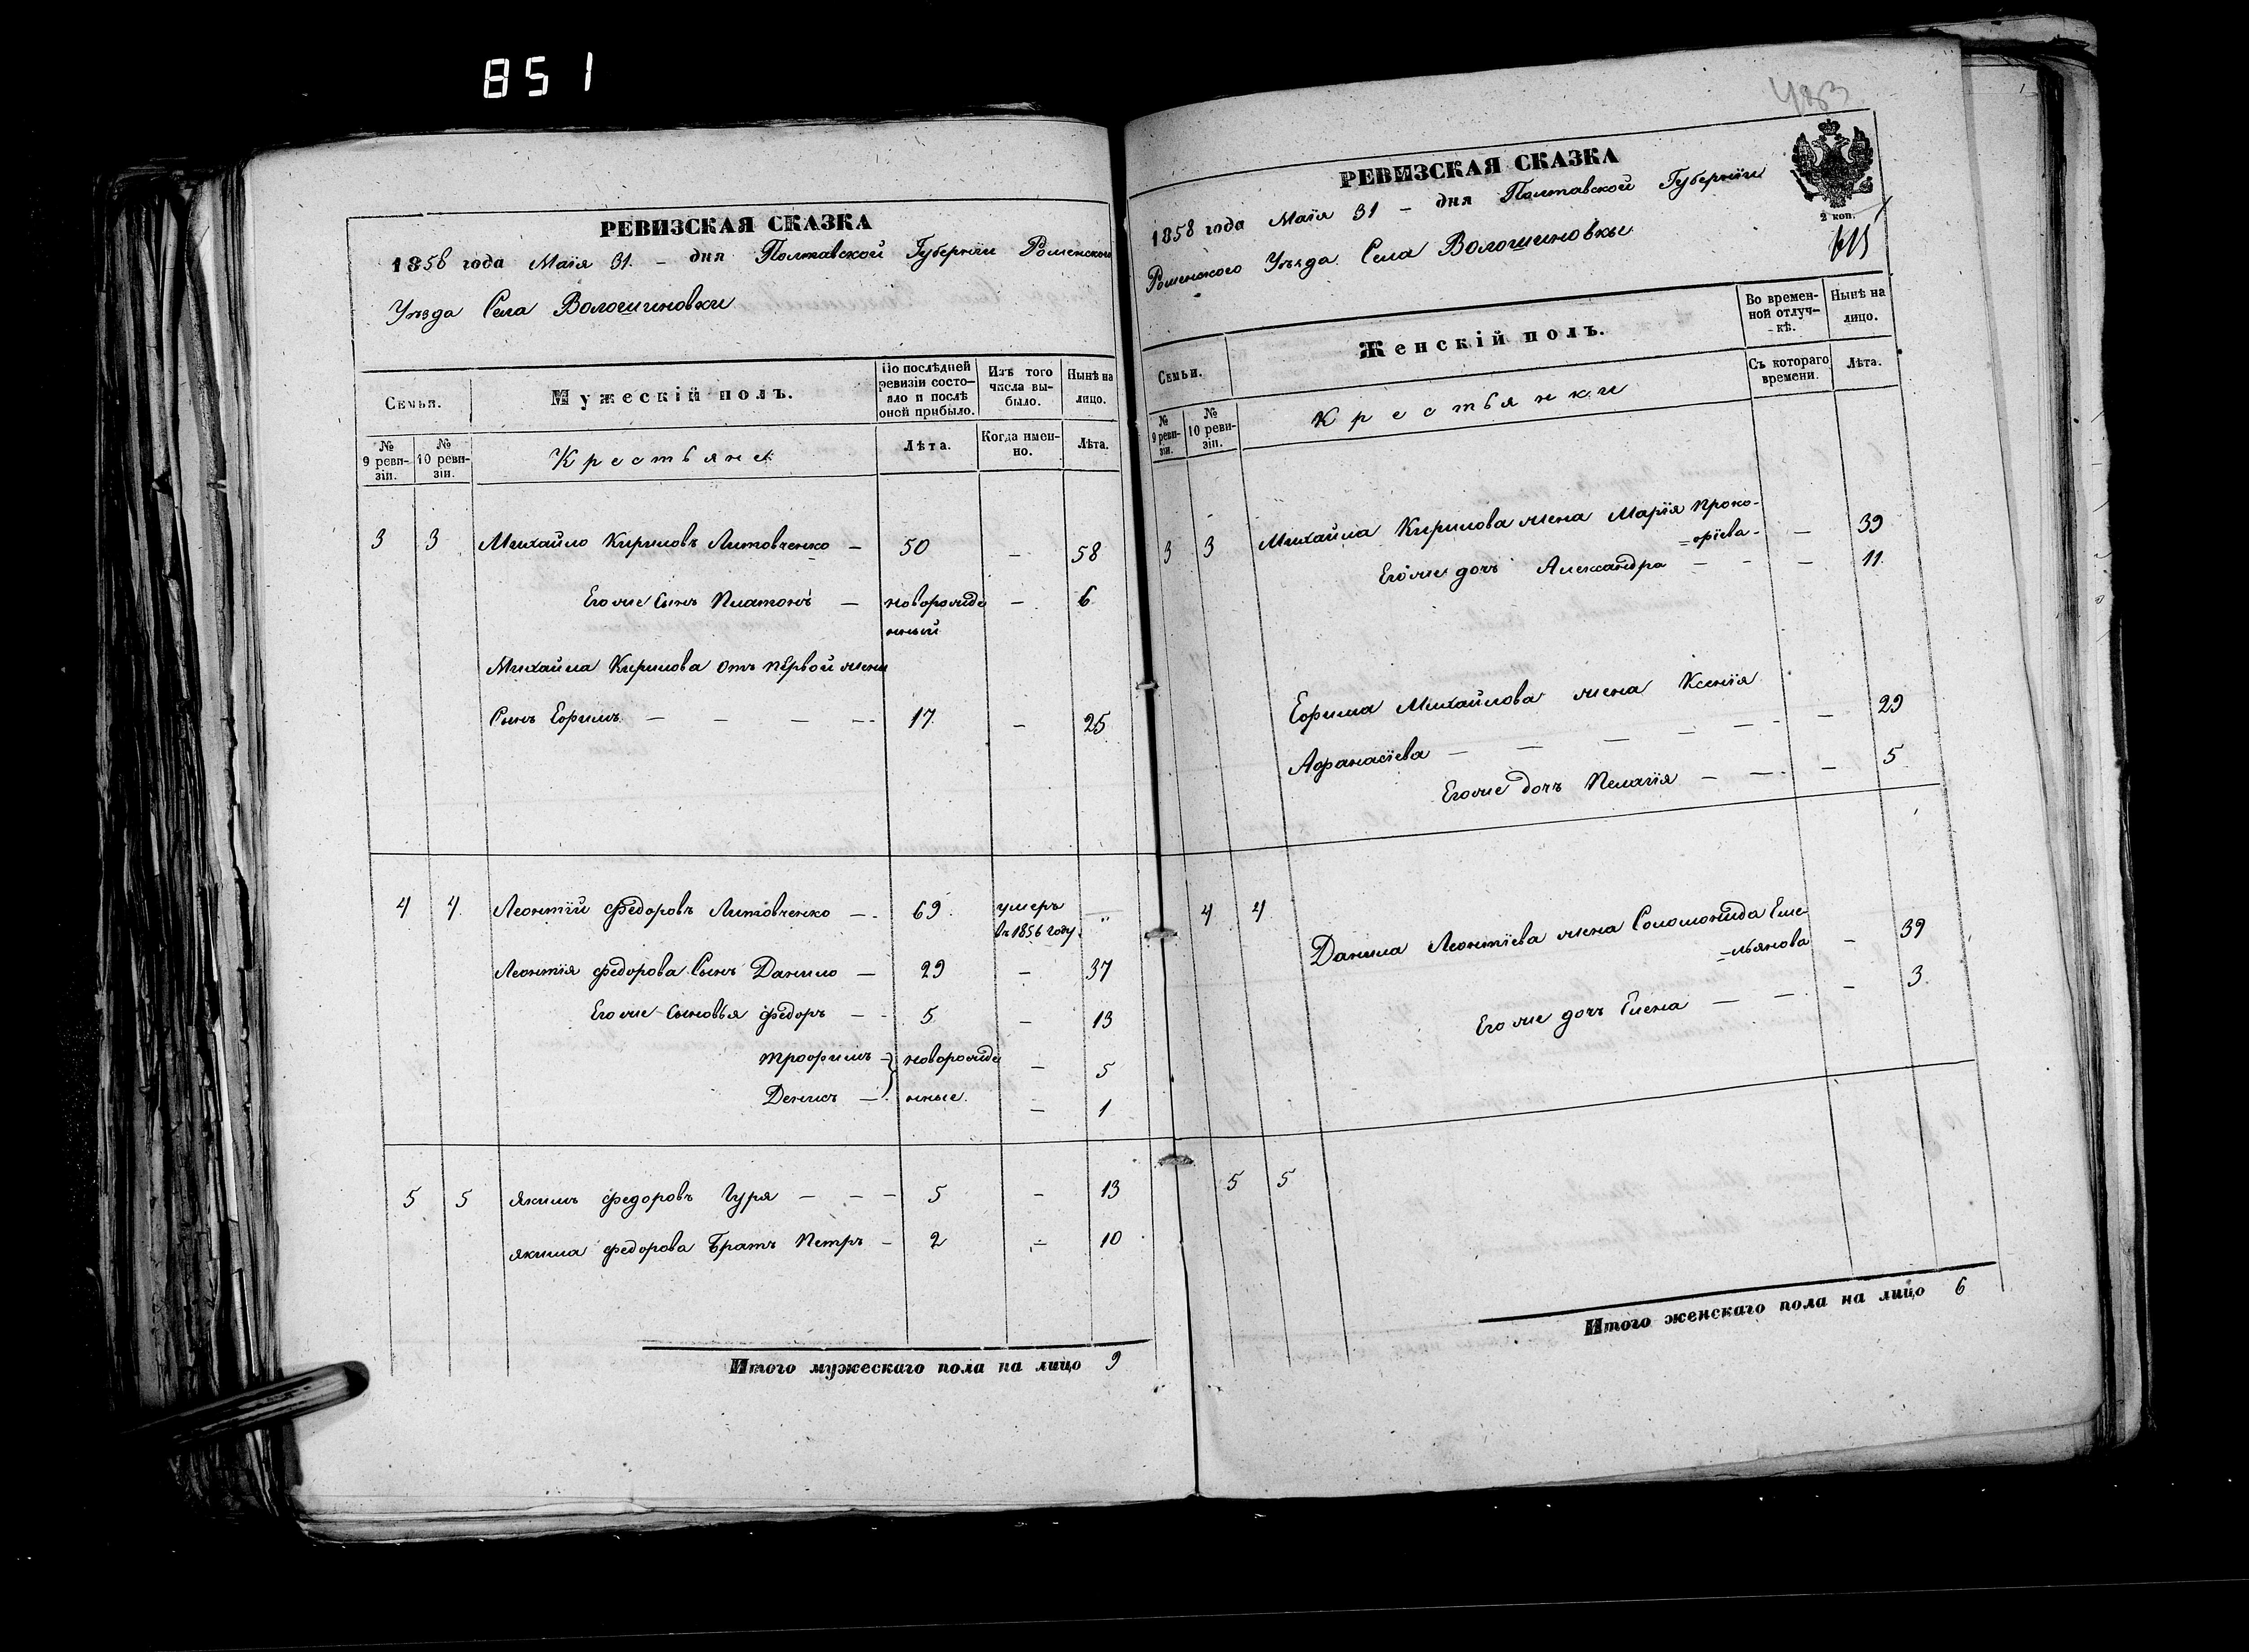 851
РЕВИЗСКАЯ СКАЗКА
1858 года Маія 31. – дня Полтавской Губерніи Роменского
Уѣзда Села Волошиновки
Семьи.
Мужескій полъ.
По послѣдней ревизіи состояло и послѣ оной прибыло.
Изъ того числа выбыло.
Нынѣ на лицо.
№ 9 ревизіи.
№ 10 ревизіи.
Крестьяне
Лѣта.
Когда именно.
Лѣта.
3 3 Михайло Кириловъ Литовченко – 50 – 58
Егоже Сынъ Платонъ – новорожде – 6
нный
Михайла Кирилова отъ первой жены
Сынъ Ефимъ – – – – 17. – 25
4 4. Леонтій Федоровъ Литовченко – 69. умеръ „
въ 1856 году.
Леонтія Федорова Сынъ Данило – 29 – 37
Егоже Сыновья Федоръ – – 5 – 13
Трофимъ – новорожде – 5
Денисъ – нные. – 1
5 5 Якимъ Федоровъ Чуря – – – 5 – 13
Якима Федорова Братъ Петръ – 2 – 10
Итого мужескаго пола на лицо 9
483
РЕВИЗСКАЯ СКАЗКА
1858 года Маія 31 – дня Полтавской Губерніи
2 коп.
Роменского Уѣзда Села Волошиновки
Семьи.
Женскій полъ.
Во временной отлучкѣ.
Нынѣ на лицо.
№ 9 ревизіи.
№ 10 ревизіи.
Крестьянки
Съ котораго времени.
Лѣта.
3 3 Михайла Кирилова жена Марія Проко-
=фіева – – 39
Егоже дочь Александра – – – 11.
Ефима Михайлова жена Ксенія
Афанасіева – – – – – – 29
Егоже дочь Пелагія – – – 5
4 4 Данила Леонтіева жена Соломонида Еме
=льянова – 39
Егоже дочь Елена – – – 3
5 5
Итого женскаго пола на лицо 6